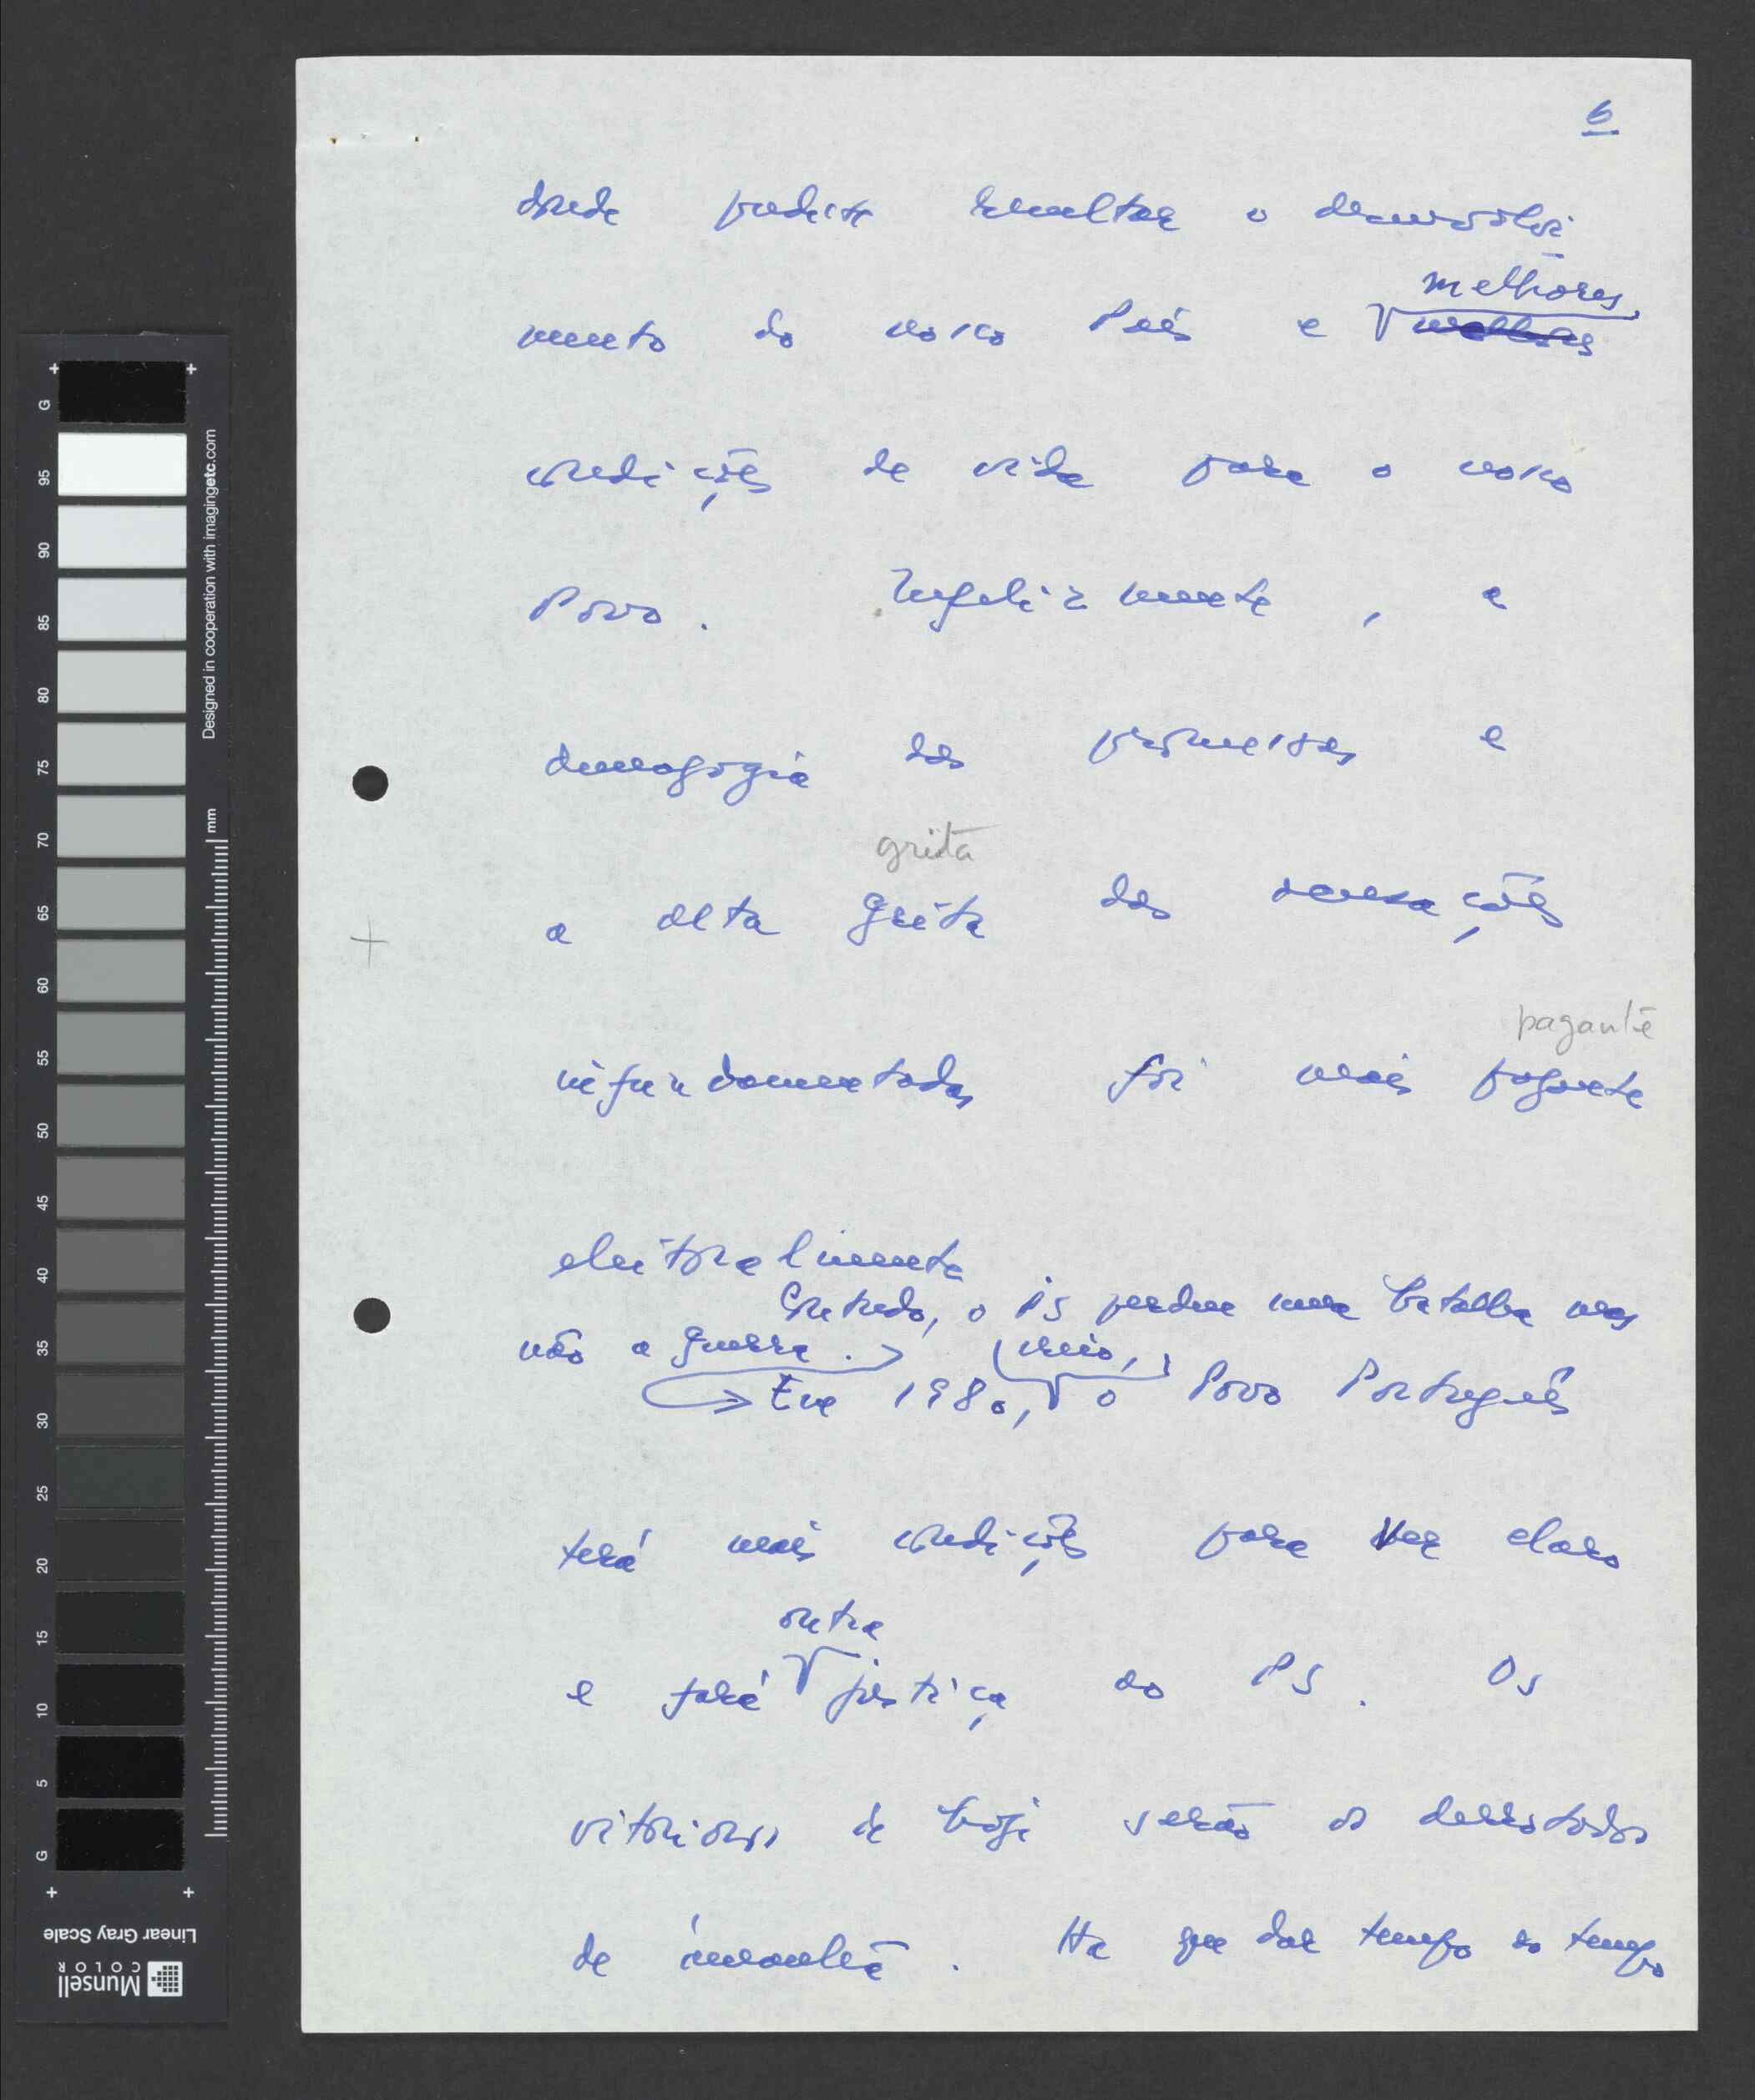 6
donde pudesse resultar o desenvolvi
melhores,
mento do nosso País e
condições de vida para o nosso
Povo. Infelizmente, a
demagogia das promessas e
gritã
a alta grita das acusações
pagante
infundamentadas foi mais pagante
eleitoralmente
Contudo, o PS perdeu uma batalha mas
não a guerra.
creio,
Em 1980, o Povo Português
terá mais condições para ver claro
outra
e fará justiça ao PS. Os
vitoriosos de hoje serão os derrotados
de amanhã. Há que dar tempo ao tempo
G
95
90
85
80
75
70
65
60
55
50
45
40
35
30
25
20
15
10
5
G
mm
Designed in cooperation with imagingetc.com
Linear Gray Scale
Munsell
COLOR